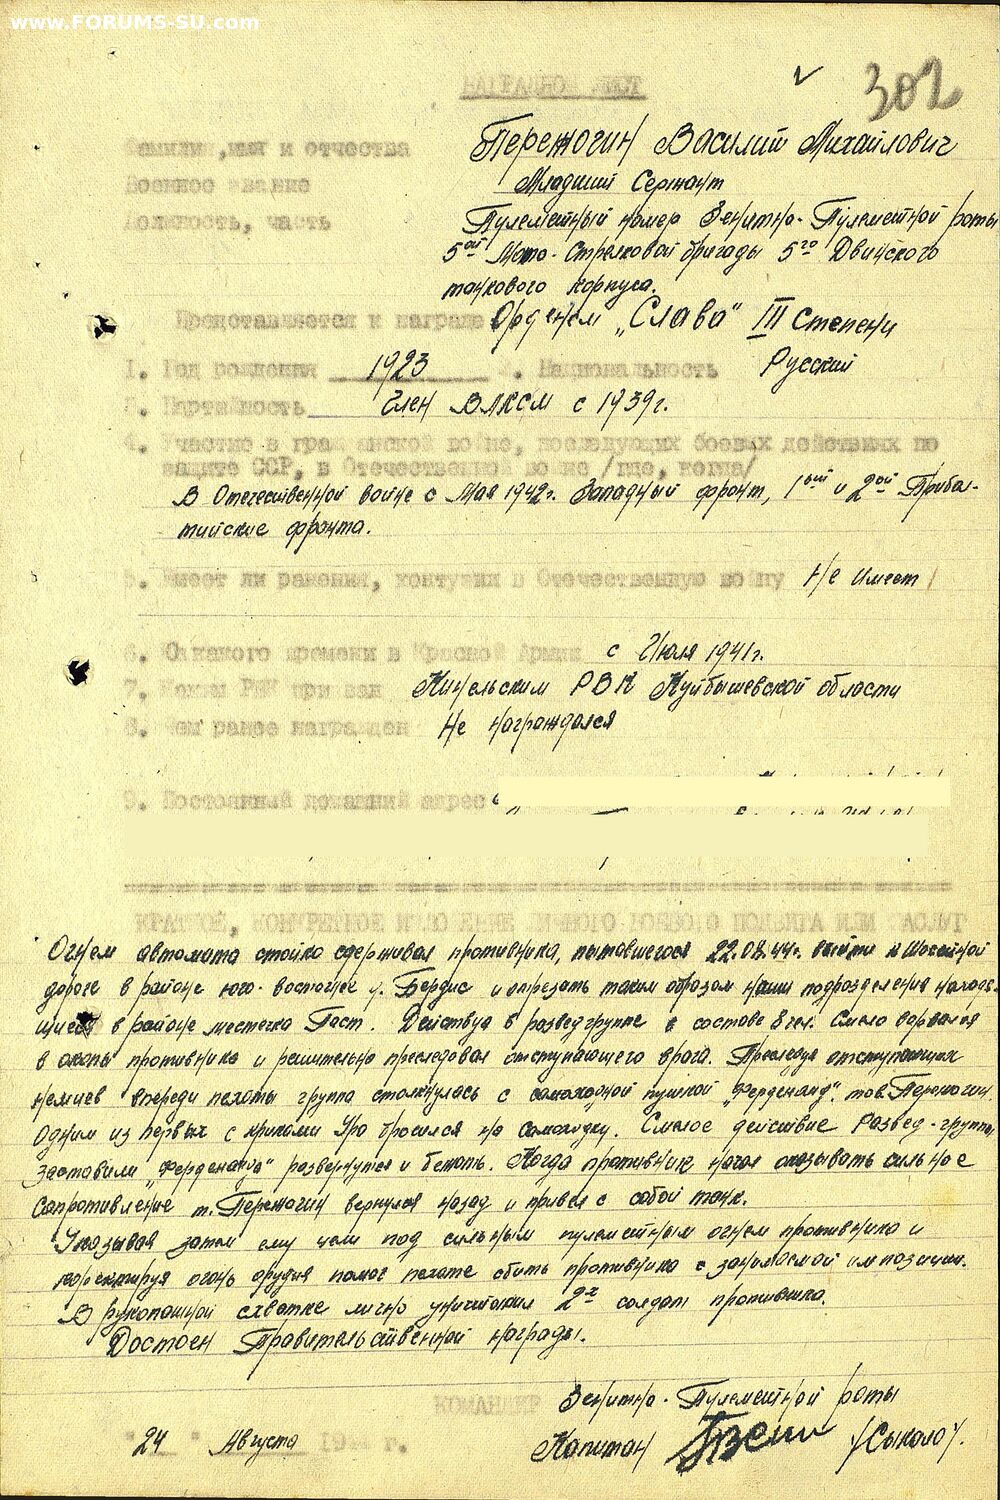 www.FORUMS-SU.com
302
НАГРАДНОЙ ЛИСТ
Фамилия, имя и отчества Пережогин Василий Михайлович
Военное звание Младший Сержант
Должность, часть Пулеметный номер Зенитно-Пулеметной роты
5ой Мото-Стрелковой бригады 5го Двинского
танкового корпуса.
Представляется к награде Орденом „Слава" III Степени
1. Год рождения 1923 2. Национальность Русский
3. Партийность Член ВЛКСМ с 1939г.
4. Участие в гражданской войне, последующих боевых действиях по
защите ССР, в Отечественной войне /где, когда/
В Отечественной войне с Мая 1942г. Западный фронт, 1ый и 2ой Прибал-
тийские фронта.
5. Имеет ли ранения, контузии в Отечественную войну Не имеет
6. С какого времени в Красной Армии с Июля 1941г.
7. Каким РВК призван Кинельским РВК Куйбышевской области
8. Чем ранее награжден Не награждался
9. Постоянный домашний адрес
КРАТКОЕ, КОНКРЕТНОЕ ИЗЛОЖЕНИЕ ЛИЧНОГО БОЕВОГО ПОДВИГА ИЛИ ЗАСЛУГ
Огнем автомата стойко сдерживал противника, пытавшегося 22.08.44г. выйти к Шоссейной
дороге в районе юго-восточнее г. Бердис и отрезать таким образом наши подразделения находя-
щиеся в районе местечка Гаст. Действуя в разведгруппе в составе 8 чел. Смело ворвался
в окопы противника и решительно преследовал отступающего врага. Преследуя отступающих
немцев впереди пехоты группа столкнулась с самоходной пушкой „Ферденанд". тов. Пережогин
Одним из первых с криками Ура бросился на Самоходку. Смелое действие Развед-группы
заставили „Фердинанда" развернутся и бежать. Когда противник начал оказывать сильное
сопротивление т. Пережогин вернулся назад и привел с собой танк.
Указывая затем ему цели под сильным пулеметным огнем противника и
корректируя огонь орудия помог пехоте сбить противника с занимаемой им позиции.
В рукопашной схватке лично уничтожил 2х солдат противника.
Достоен Правительственной награды.
КОМАНДИР Зенитно-Пулеметной роты
"24" Августа 194 г. Капитан /Сыколо/.